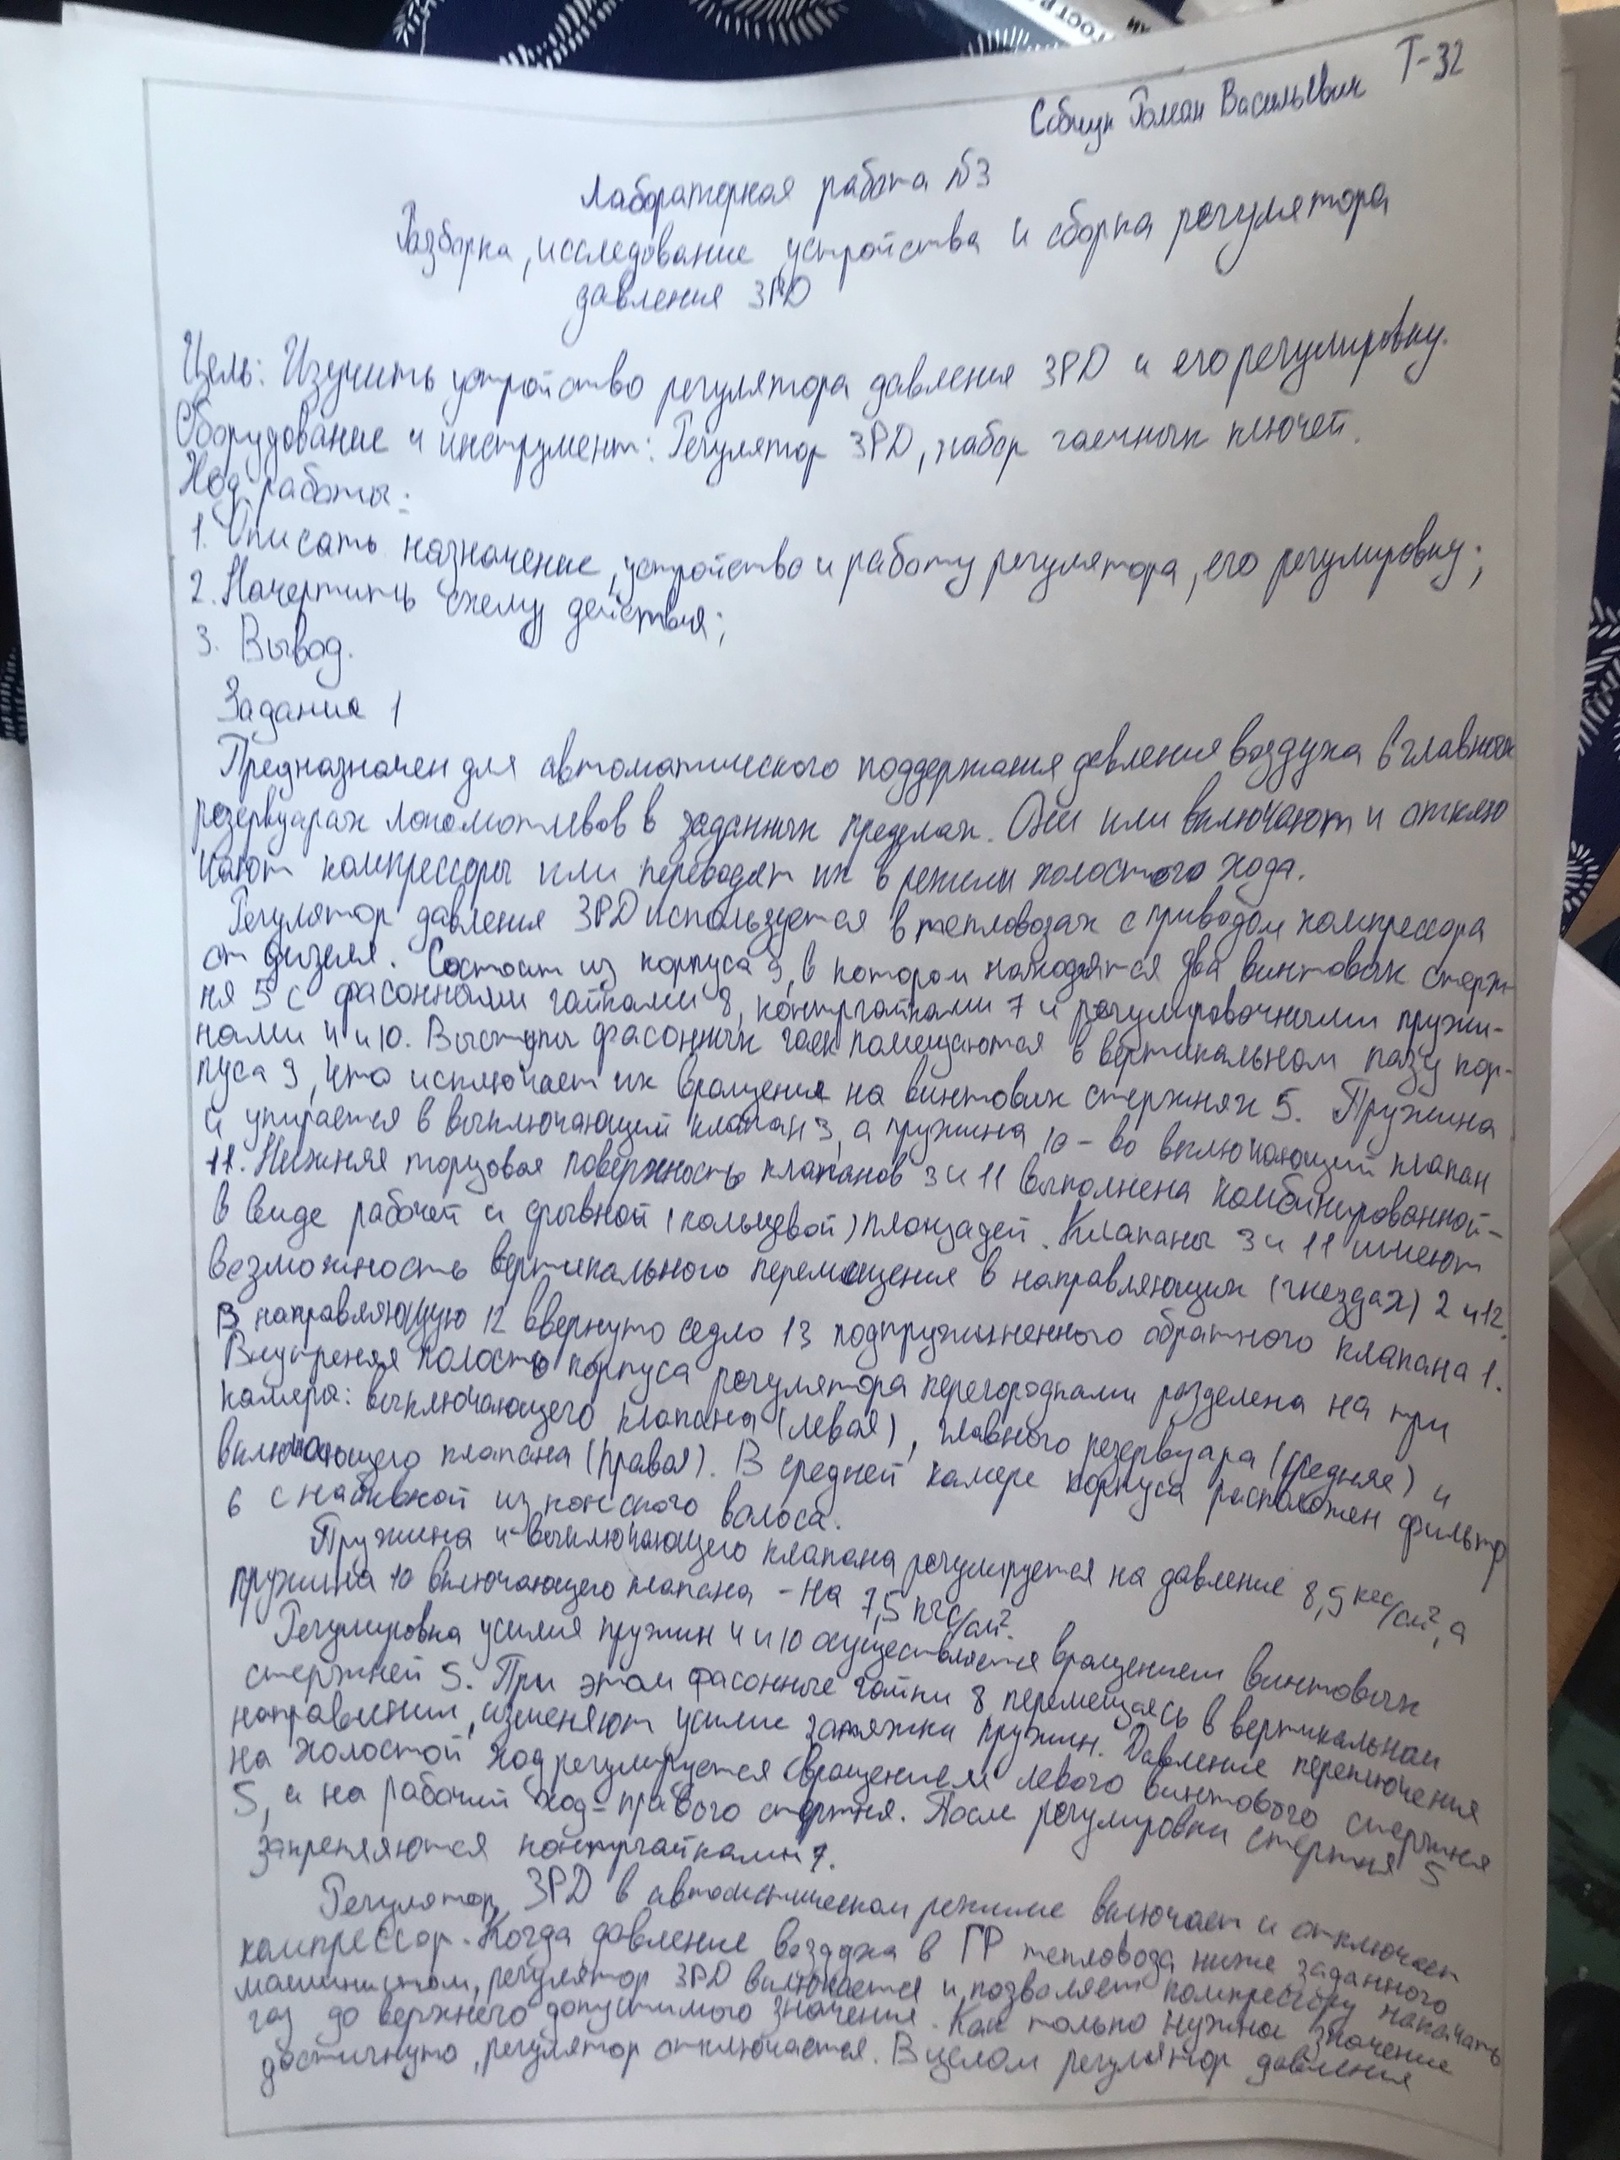 ГОСТ Р
Роман Васильевич Т-32
Лабораторная работа №3
Разборка, исследование устройства и сборка регулятора
давления 3РД
Цель: Изучить устройство регулятора давления 3РД и его регулировку.
Оборудование и инструмент: Регулятор 3РД, набор гаечных ключей.
Ход работы:
1. Описать назначение, устройство и работу регулятора, его регулировку;
2. Начертить схему действия;
3. Вывод.
Задание 1
Предназначен для автоматического поддержания давления воздуха в главных
резервуарах локомотивов в заданных пределах. Они или включают и отклю
чают компрессоры или переводят их в режим холостого хода.
Регулятор давления 3РД используется в тепловозах с приводом компрессора
от дизеля. Состоит из корпуса 9, в котором находятся два винтовых стерж-
ня 5 с фасонными гайками 8, контргайками 7 и регулировочными пружи-
нами 4 и 10. Выступы фасонных гаек помещаются в вертикальном пазу кор-
пуса 9, что исключает их вращение на винтовых стержнях 5. Пружина
4 упирается в выключающий клапан 3, а пружина 10 - во включающий клапан
11. Нижняя торцовая поверхность клапанов 3 и 11 выполнена комбинированной-
в виде рабочей и срывной (кольцевой) площадей. Клапаны 3 и 11 имеют
возможность вертикального перемещения в направляющих (гнездах) 2 и 12.
В направляющую 12 ввернуто седло 13 подпружиненного обратного клапана 1.
Внутреняя полость корпуса регулятора перегородками разделена на три
камеры: выключающего клапана (левая), главного резервуара (средняя) и
включающего клапана (правая). В средней камере корпуса расположен фильтр
6 с набивкой из конского волоса.
Пружина 4 выключающего клапана регулируется на давление 8,5 кгс/см², а
пружина 10 включающего клапана - на 7,5 кгс/см².
Регулировка усилия пружин 4 и 10 осуществляется вращением винтовых
стержней 5. При этом фасонные гайки 8 перемещаясь в вертикальном
направлении, изменяют усилие затяжки пружин. Давление переключения
на холостой ход регулируется вращением левого винтового стержня
5, а на рабочий ход - правого стержня. После регулировки стержня 5
закрепляются контргайками 7.
Регулятор 3РД в автоматическом режиме включает и отключает
компрессор. Когда давление воздуха в ГР тепловоза ниже заданного
машинистом, регулятор 3РД включается и позволяет компрессору накачать
газ до верхнего допустимого значения. Как только нужное значение
достигнуто, регулятор отключается. В целом регулятор давления